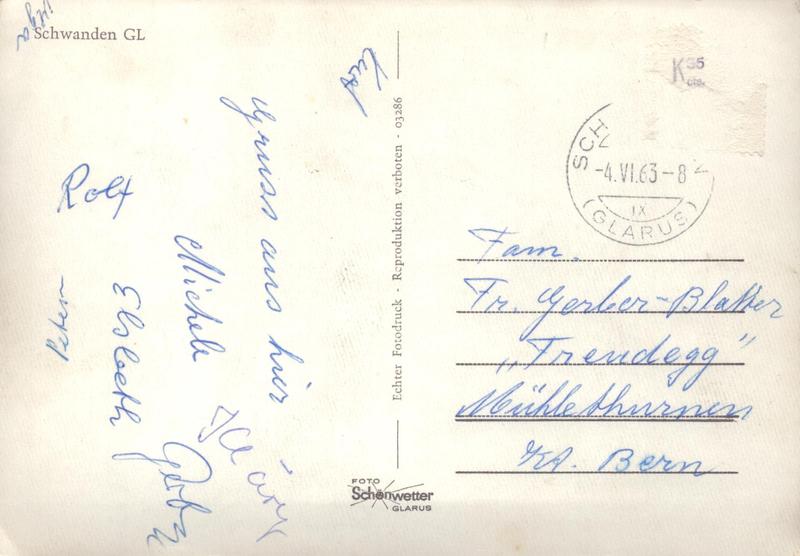 Schwanden GL
Kurt
Gruss aus hier
Michele
Rolf
Elsbeth
Peter
K 35
cts.
SCH N
-4.VI.63-8
IX
(GLARUS)
Echter Fotodruck - Reproduktion verboten - 03286
FOTO
Schönwetter
GLARUS
Fam.
Fr. Gerber-Blatter
„Freudegg"
Mühlethurnen
Kt. Bern